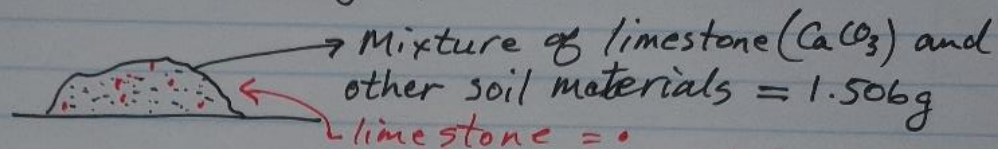 Mixture of limestone (CaCO₃) and
other soil materials = 1.506g
limestone = •